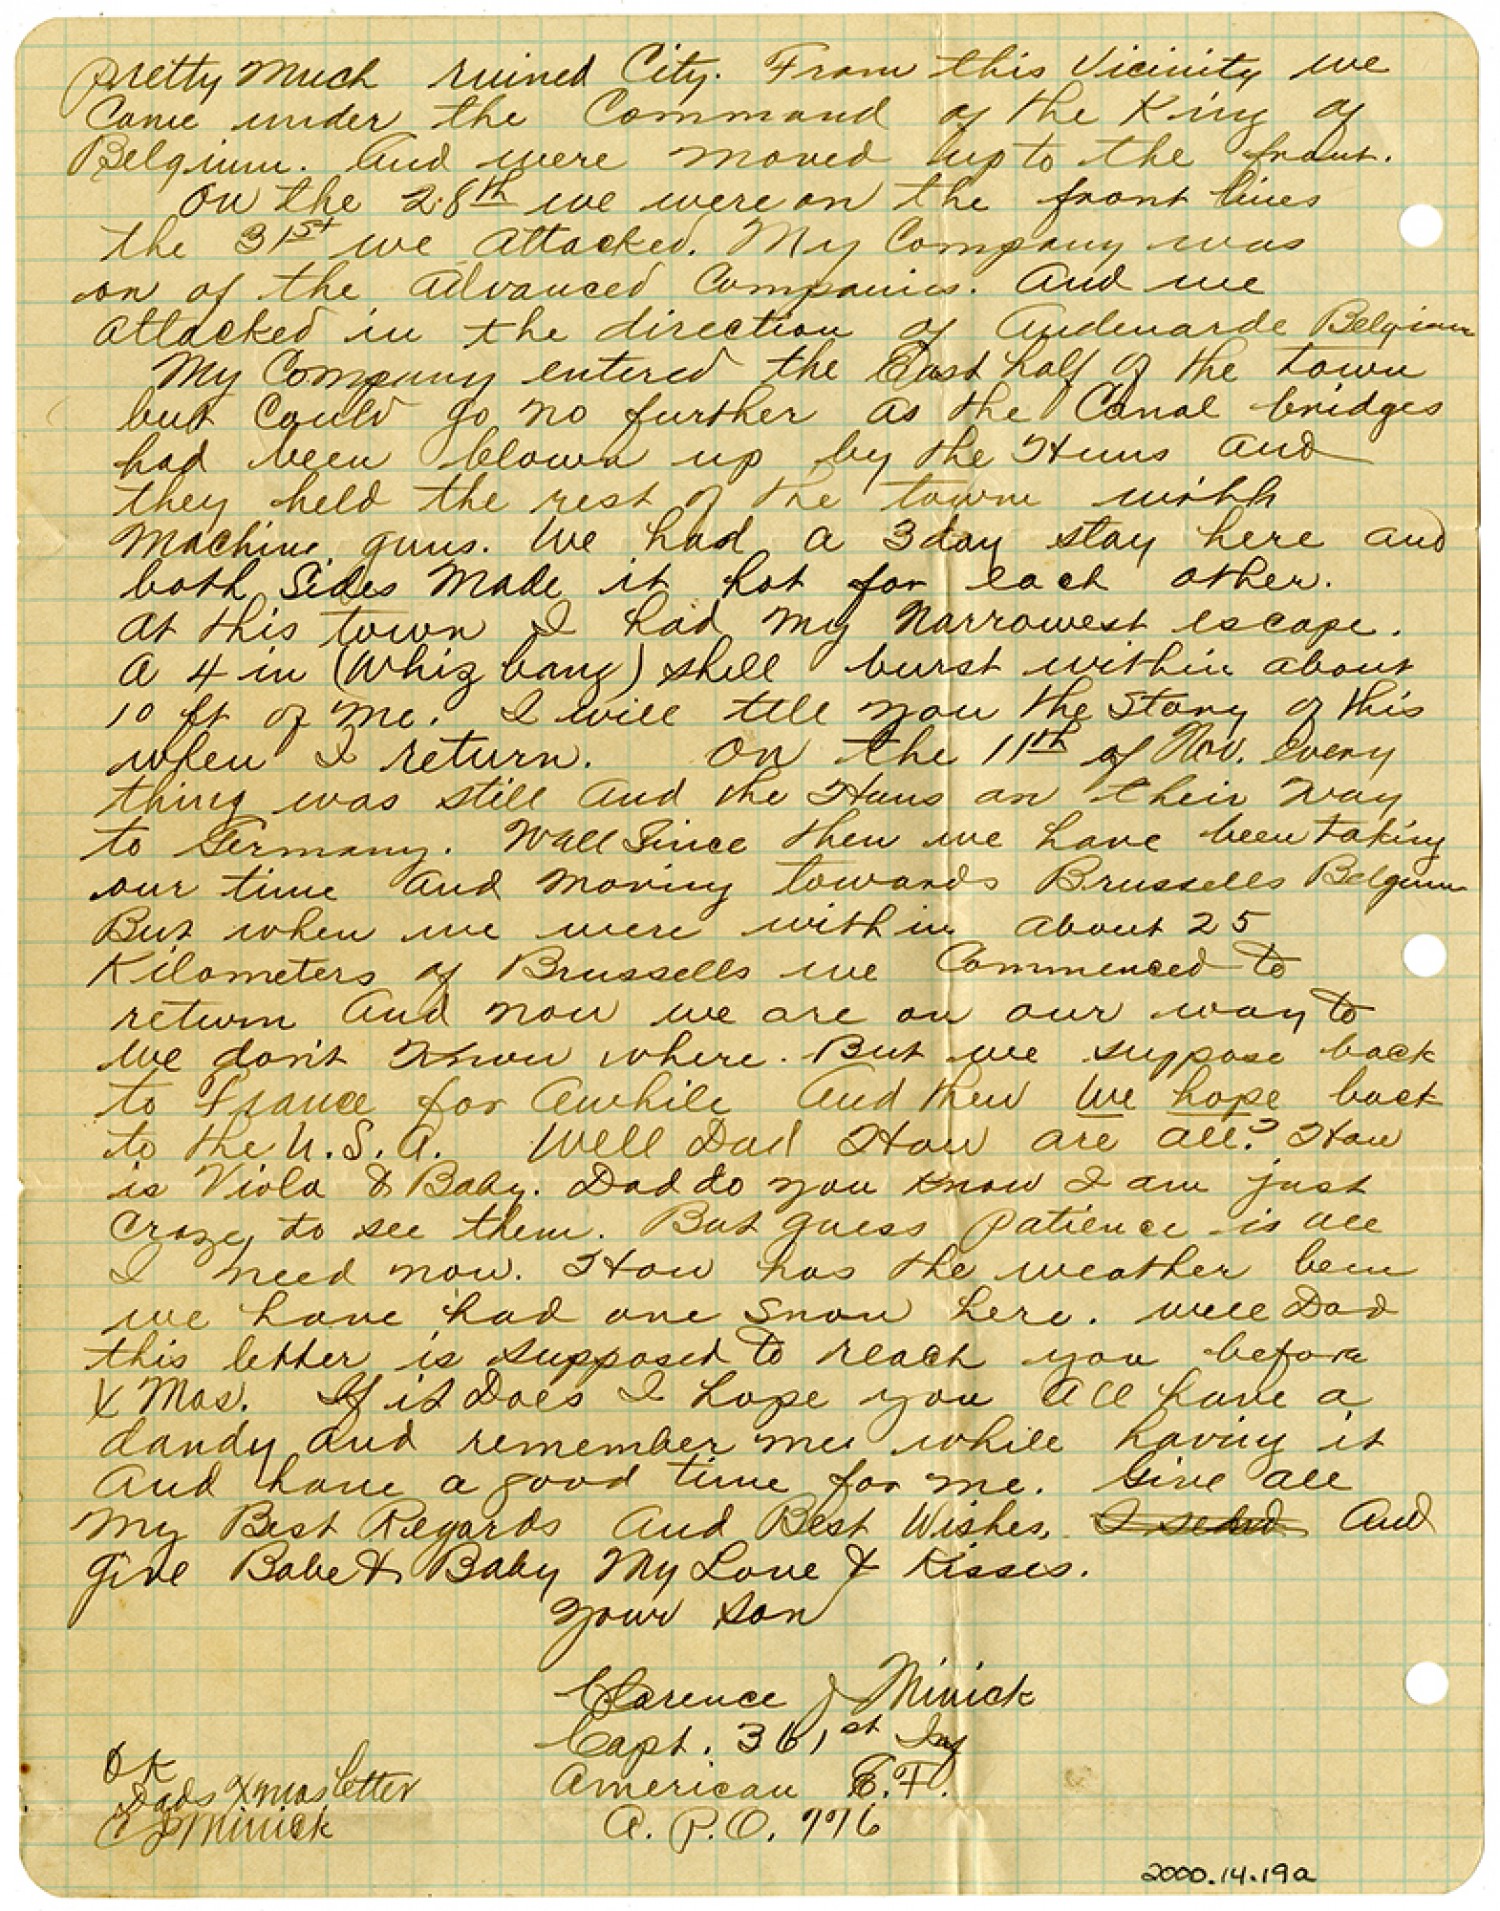 pretty Much ruined City. From this Vicinity we
Came under the Command of the King of
Belgium. And were moved up to the front.
On the 28th we were on the front lines
the 31st we Attacked. My Company was
on of the Advanced Companies. And we
attacked in the direction of Audenarde Belgium
My Company entered the East half of the town
but could go no further as the Canal bridges
had been blown up by the Huns and
they held the rest of the town with
Machine guns. We had a 3 day stay here and
both Sides Made it hot for each other.
At this town I had my Narrowest escape.
A 4 in (Whiz bang) shell burst within about
10 ft of me. I will tell you the Story of this
when I return. On the 11th of Nov. every
thing was still and the Huns on their way
to Germany. Well Since then we have been taking
our time and moving towards Brussells Belgium
But when we were within about 25
Kilometers of Brussells we Commenced to
return And now we are on our way to
we don't Know where. But we suppose back
to France for Awhile And then We hope back
to the U.S.A. Well Dad How are all? How
is Viola & Baby. Dad do you know I am just
crazy to see them. But guess patience is all
I need now. How has the weather been
we have had one snow here. Well Dad
this letter is supposed to reach you before
X Mas. If it Does I hope you All have a
dandy and remember me while having it
And have a good time for me. Give all
My Best Regards And Best Wishes. I send And
give Babe & Baby My Love & Kisses.
Your Son
Clarence J Minick
Capt. 361st Inf
American E.F.
A.P.O. 776
OK
Dads Xmas letter
C J Minick
2000.14.19a